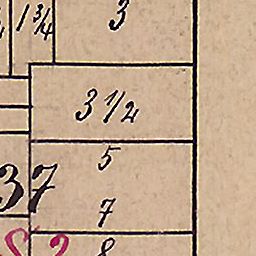 1 3/4
3
3 1/2
5
37
7
8